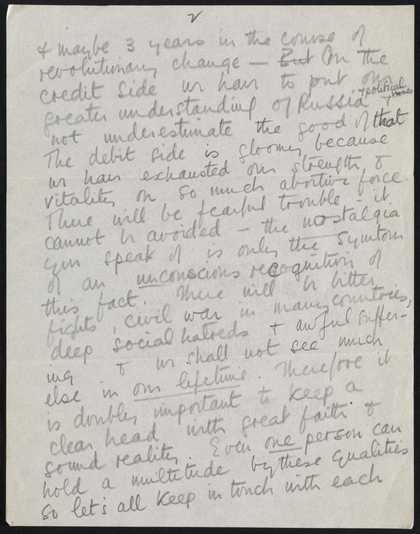 2
& maybe 3 years in the course of
revolutionary change — But On the
credit side we have to put our
greater understanding of Russia + political
not underestimate the good of that
The debit side is gloomy because
we have exhausted our strength, &
vitality on so much abortive force.
There will be fearful trouble – it
cannot be avoided – the nostalgia
you speak of is only the symtom
of an unconscious recognition of
this fact. There will be bitter
fights, civil war in many countries,
deep social hatreds & awful suffer-
ing & we shall not see much
else in our lifetime. Therefore it
is doubly important to keep a
clear head with great faith &
sound reality. Even one person can
hold a multitude by these qualities
so let's all keep in touch with each